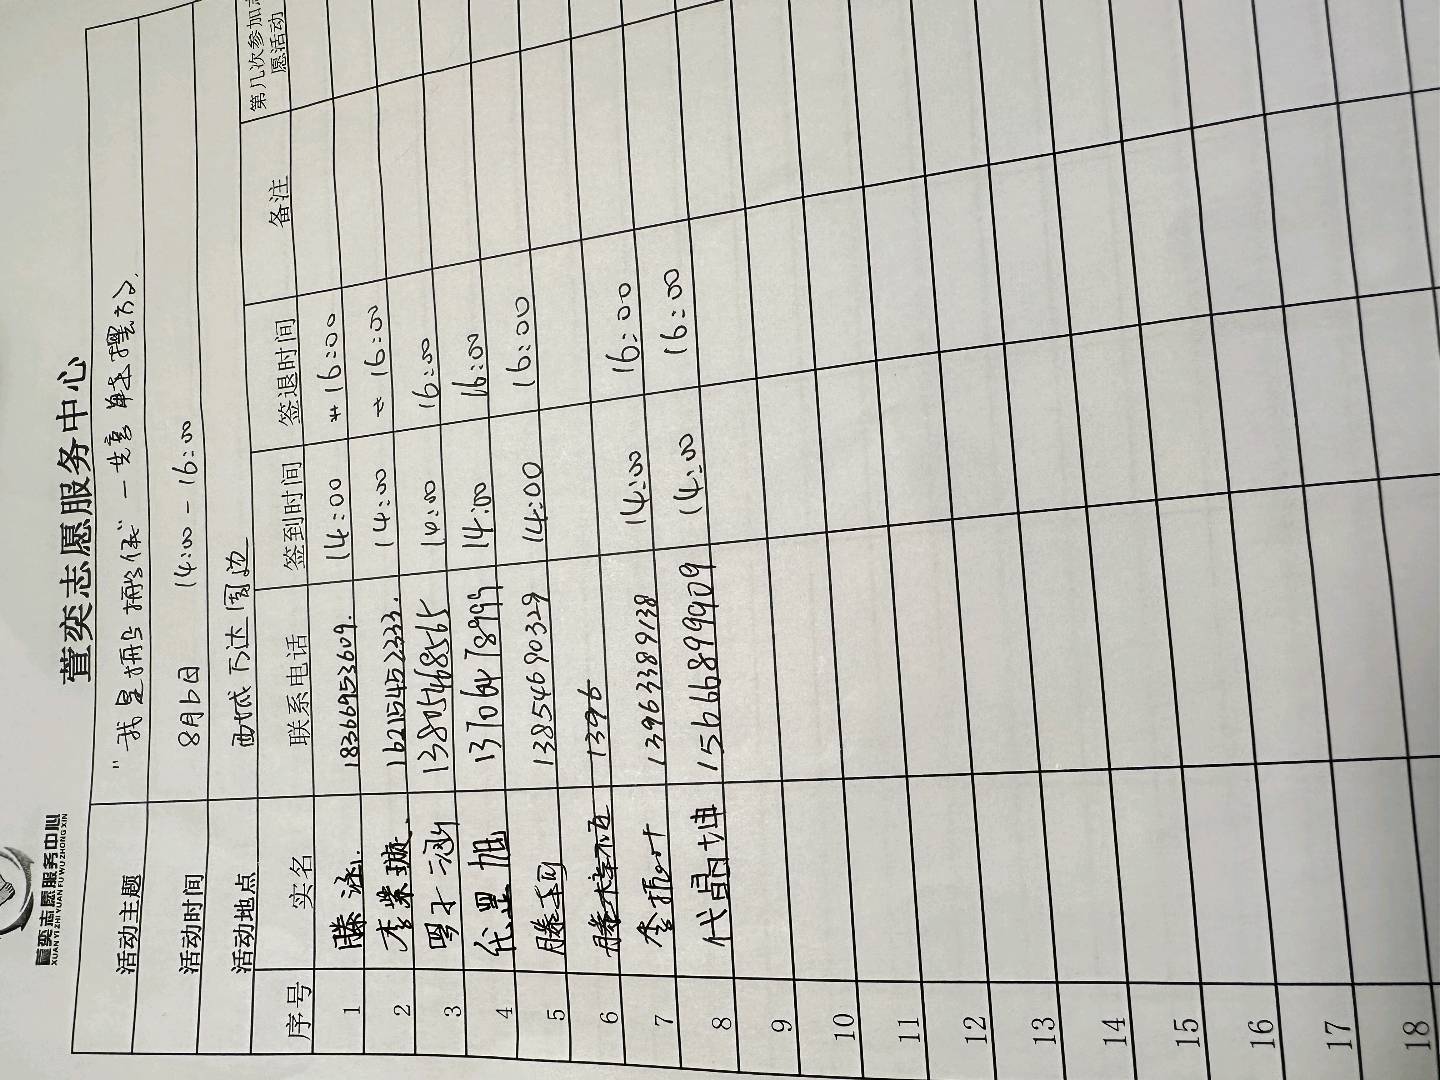 萱奕志愿服务中心
XUAN YI ZHI YUAN FU WU ZHONG XIN
萱奕志愿服务中心
活动主题 "我是
活动时间 8月6日 14:00-16:00
活动地点 西城万达周边
序号 实名 联系电话 签到时间 签退时间 备注 第几次参加志愿活动
1 滕泳 18366953609. 14:00 16:00
2 李紫璇 16215452333. 14:00 16:00
3 13805468565 14:00 16:00
4 代罡旭 13706478999 14:00 16:00
5 滕 13854690329 14:00 16:00
6 1396
7 李 13963389138 14:00 16:00
8 代晶坤 15666899909 14:00 16:00
9
10
11
12
13
14
15
16
17
18